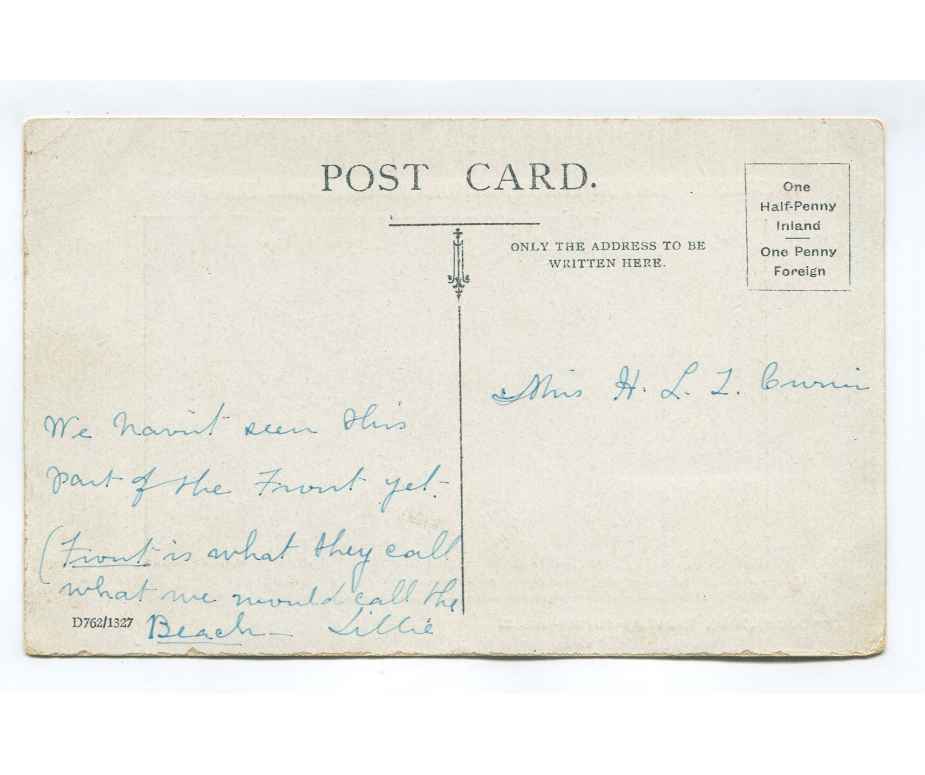 POST CARD.
ONLY THE ADDRESS TO BE
WRITTEN HERE.
One
Half-Penny
Inland
One Penny
Foreign
We havn't seen this
part of the Front yet.
(Front is what they call
what we would call the
Beach - Lillie
Miss H. L. L. Currie
D762/1327